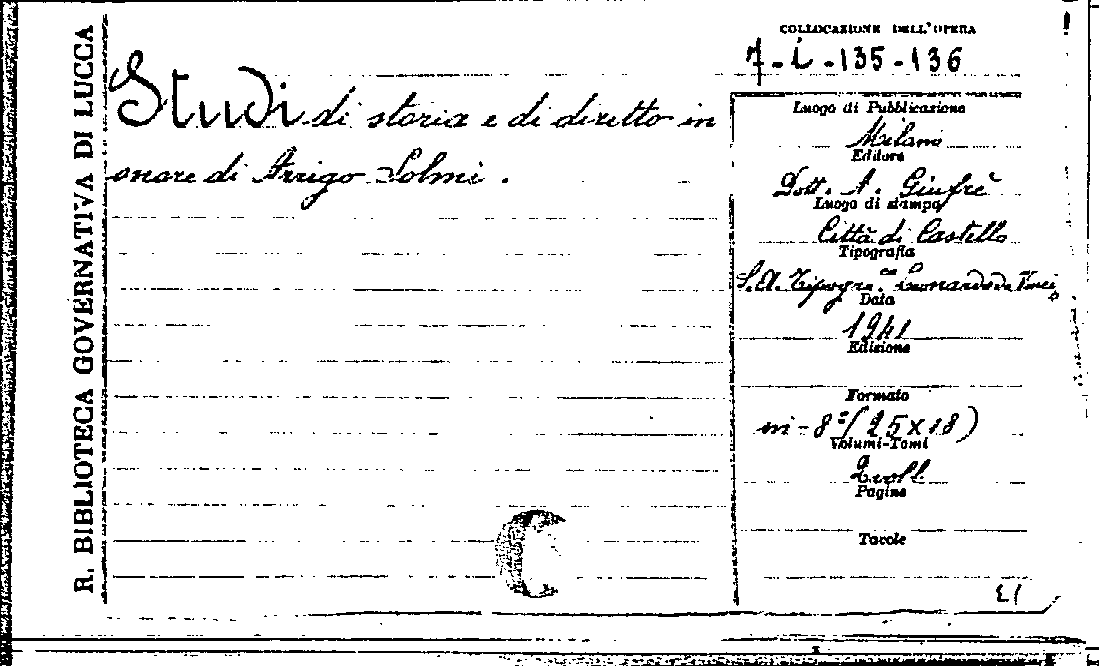 R. BIBLIOTECA GOVERNATIVA DI LUCCA
Studi di storia e di diritto in
onore di Arrigo Solmi.
COLLOCAZIONE DELL'OPERA
7-L-135-136
Luogo di Pubblicazione
Milano
Editore
Dott. A. Giuffrè
Luogo di stampa
Città di Castello
Tipografia
S.A. Tipogra.ca Leonardo da Vinci
Data
1941
Edizione
Formato
in-8°(25x18)
Volumi-Tomi
2 voll.
Pagine
Tavole